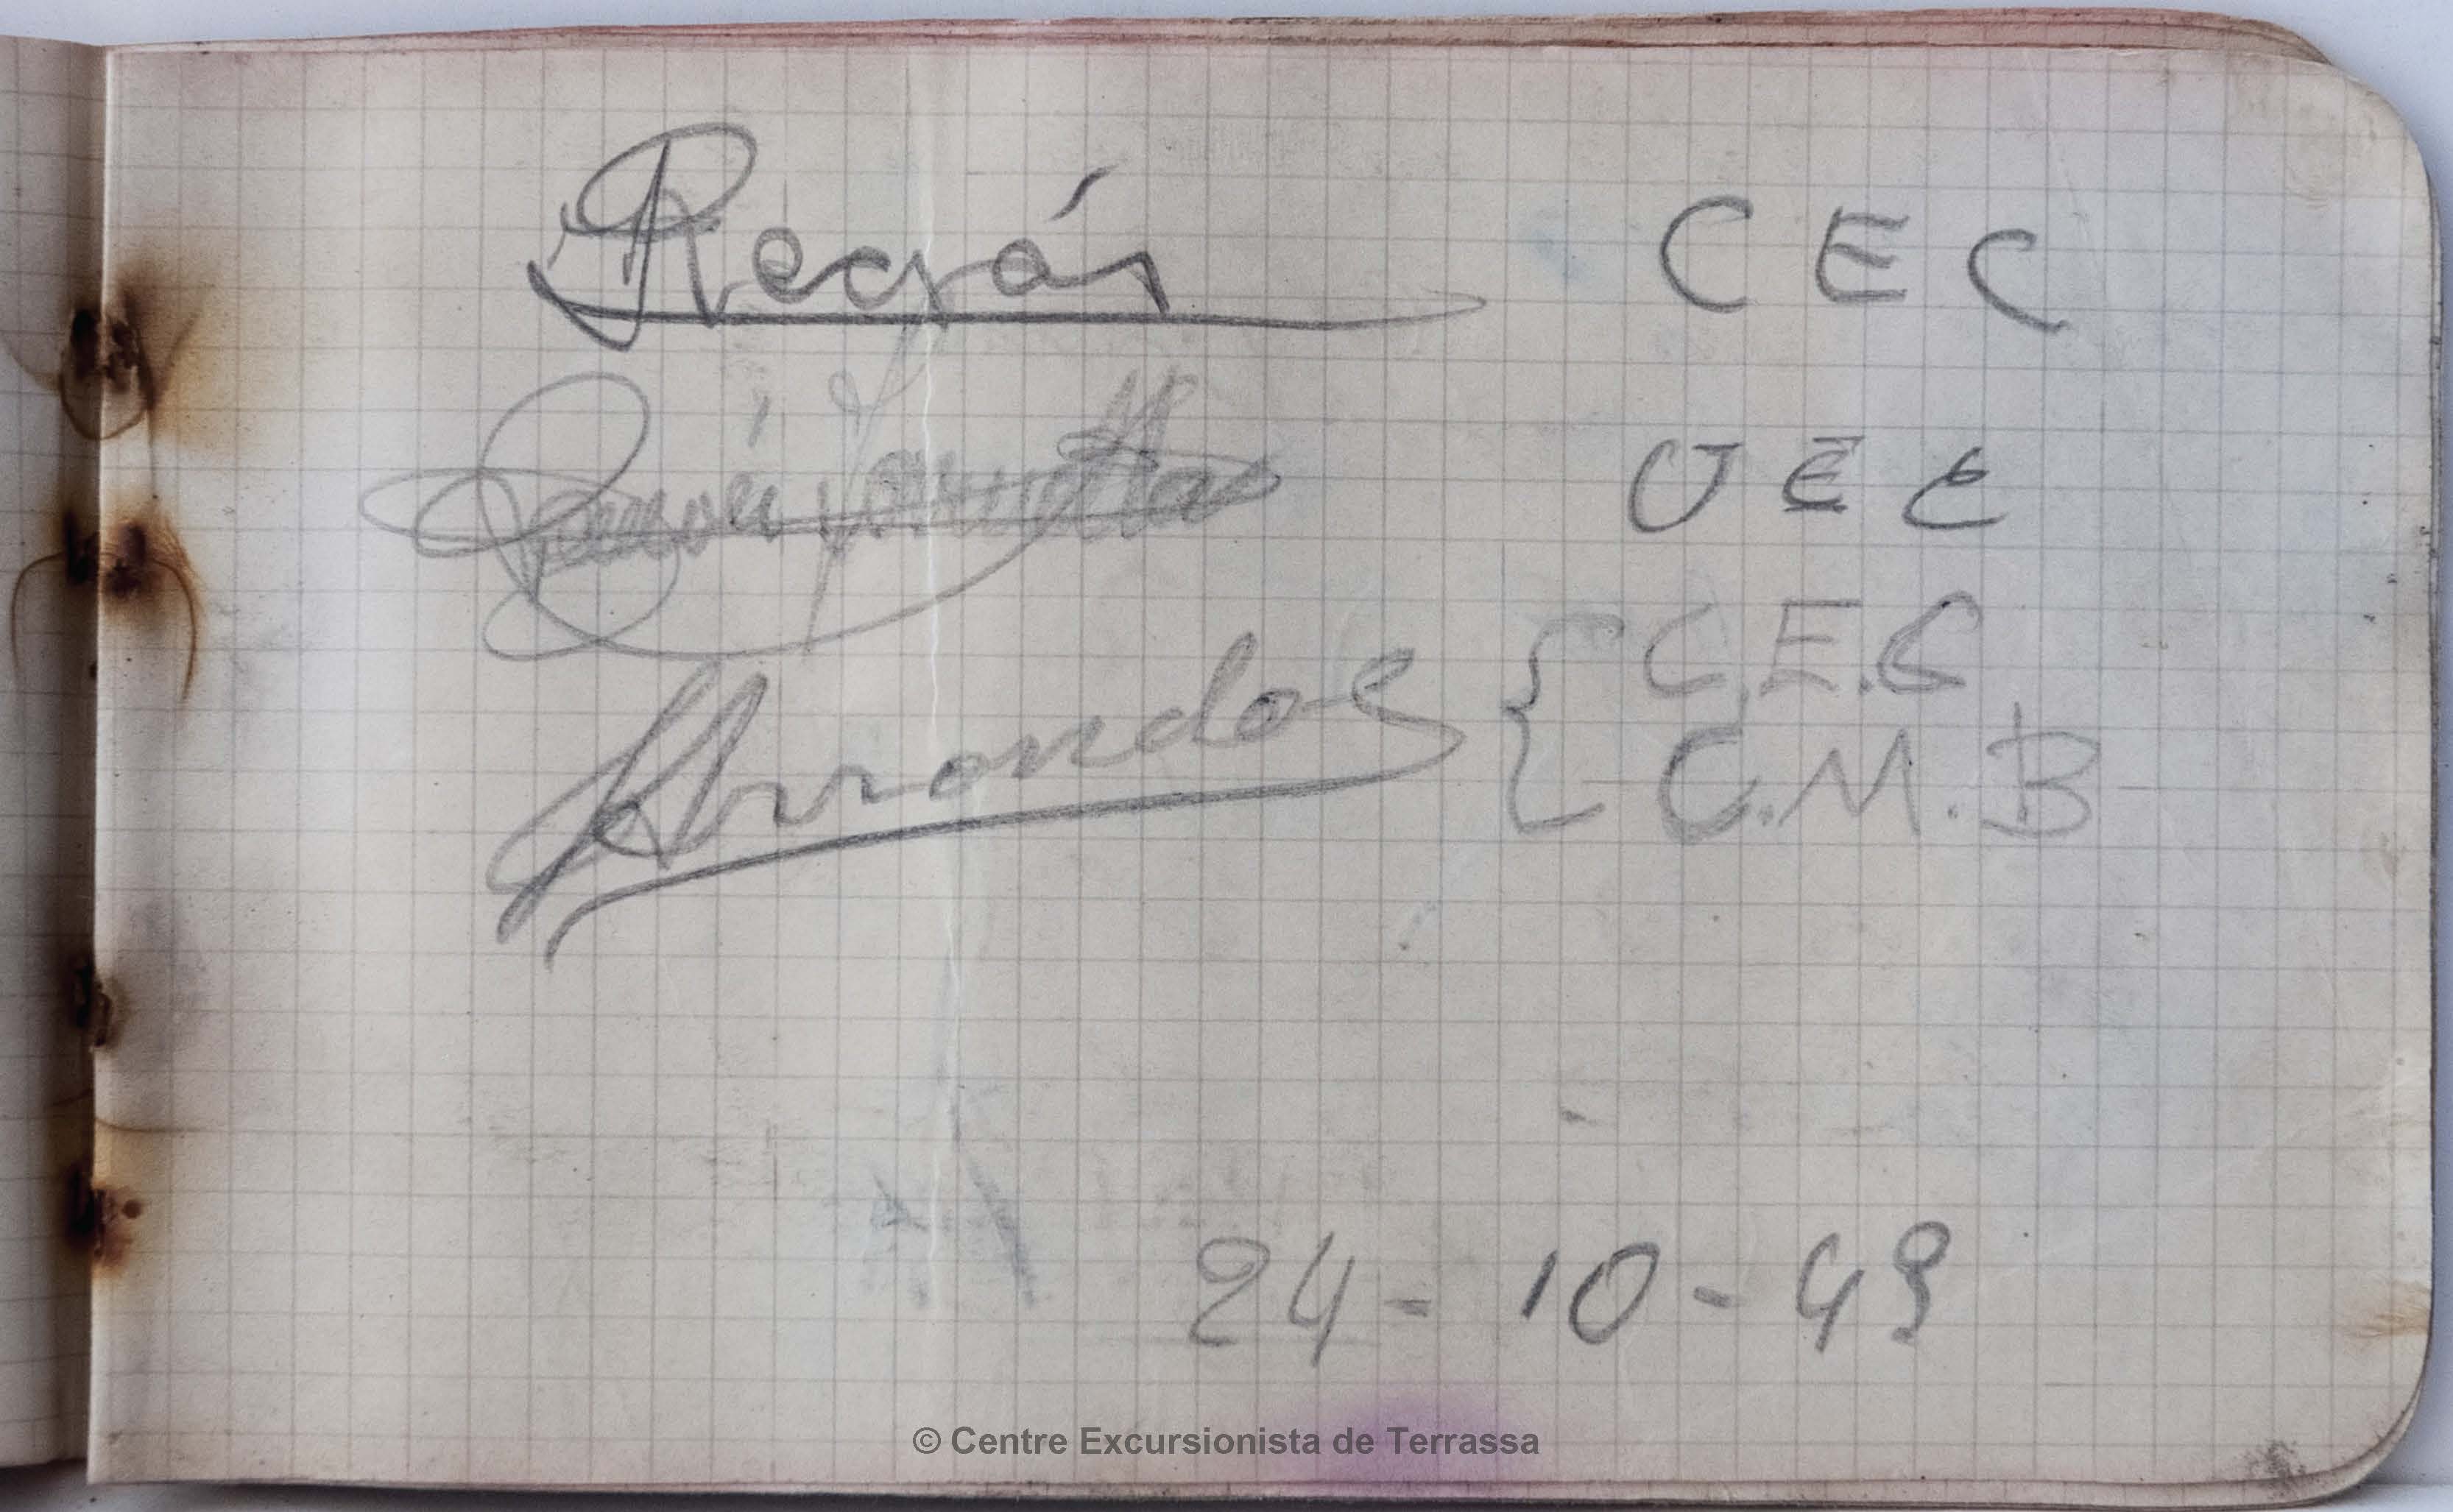 Regás CEC
Ramón UEC
Arrondo C.E.C
C.M.B
24-10-49
© Centre Excursionista de Terrassa